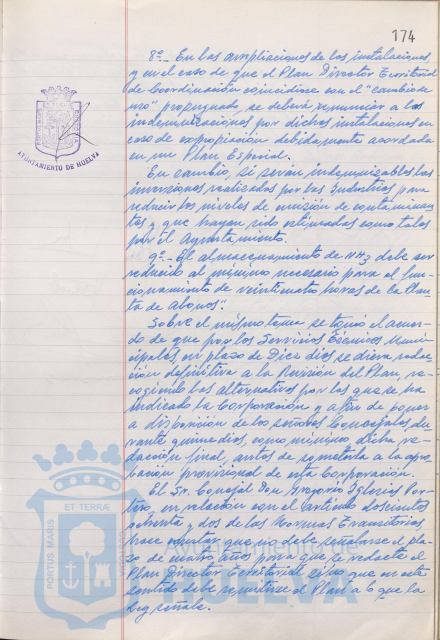 174
8º.- En las ampliaciones de las instalaciones,
y en el caso de que el Plan Director Territorial
de Coordinación coincidiese con el "cambio de
uso" propugnado se deberá renunciar a las
indemnizaciones por dichas instalaciones en
caso de expropiación debidamente acordada
en un Plan Especial.
En cambio, si serán indemnizables las
inversiones realizadas por las Industrias para
reducir los niveles de emisión de contaminan
tes y que hayan sido estimadas como tales
por el Ayuntamiento.
9º.- El almacenamiento de NH3 debe ser
reducido al mínimo necesario para el fun-
cionamiento de veinticuatro horas de la Plan-
ta de Abonos".
Sobre el mismo tema se tomó el acuer-
do de que por los Servicios Técnicos Muni-
cipales, en plazo de Diez días se diera redac-
ción definitiva a la Revisión del Plan, re-
cogiendo las alternativas por las que se ha
indicado la Corporación y a fin de poner
a disposición de los señores Concejales du-
rante quince días, como mínimo, dicha re-
dacción final, antes de someterla a la apro-
bación provisional de esta Corporación.
El Sr. Concejal Don Gregorio Iglesias Por-
tero, en relación con el artículo doscientos
ochenta y dos de las Normas Transitorias
hace constar que no debe señalarse el pla-
zo de cuatro años para que se redacte el
Plan Director Territorial sino que en este
sentido debe remitirse el Plan a lo que la
Ley señale.
AYUNTAMIENTO DE HUELVA
PORTUS MARIS
ET TERRAE
CUSTODIA
Ayuntamiento de
HUELVA